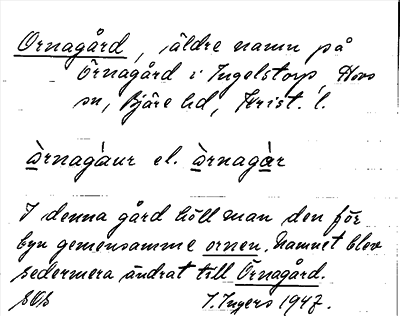 Ornagård, äldre namn på
Örnagård i Ingelstorp, Hovs
sn, Bjäre hd, Krist. l.
àrnagáur el. àrnagár
I denna gård höll man den för
byn gemensamme ornen. Namnet blev
sedermera ändrat till Örnagård.
I. Ingers 1947.